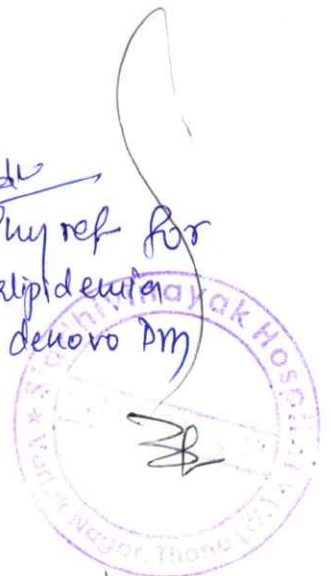 Adv
Phy ref for
lipidemia
denovo DM
Siddhivinayak Hospital
Vartak Nagar, Thane (W)